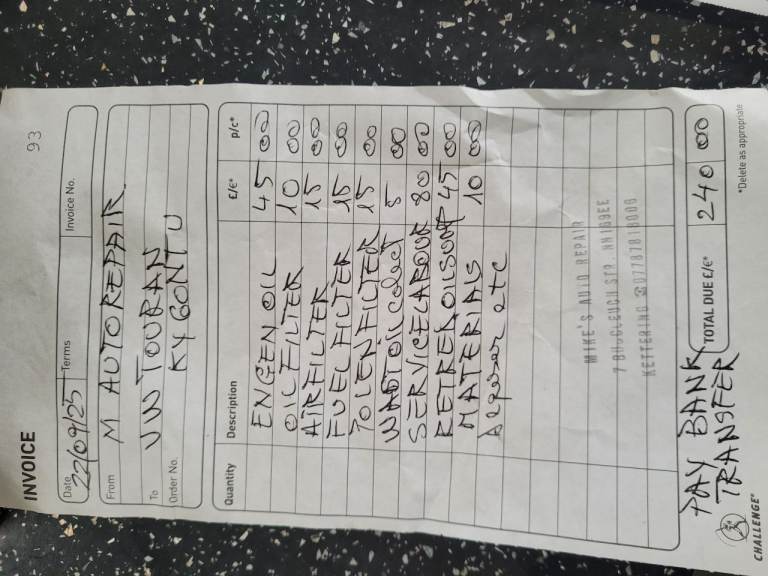 93
INVOICE
Date 22/09/25 Terms Invoice No.
From M AUTOREPAIR
To VW TOURAN
Order No. KY60NTU
Quantity Description £/€* p/c*
ENGEN OIL 45 00
OIL FILTER 10 00
AIRFILTER 15 00
FUEL FILTER 15 00
POLENFILTER 15 00
WAST OIL 5 00
SERVICE LABOUR 80 00
OILSUMP 45 00
MATERIALS 10 00
etc
MIKE'S AUTO REPAIR
7 BUCCLEUCH STR. NN169EE
KETTERING
TOTAL DUE £/€* 240 00
*Delete as appropriate
PAY BANK
TRANSFER
CHALLENGE®